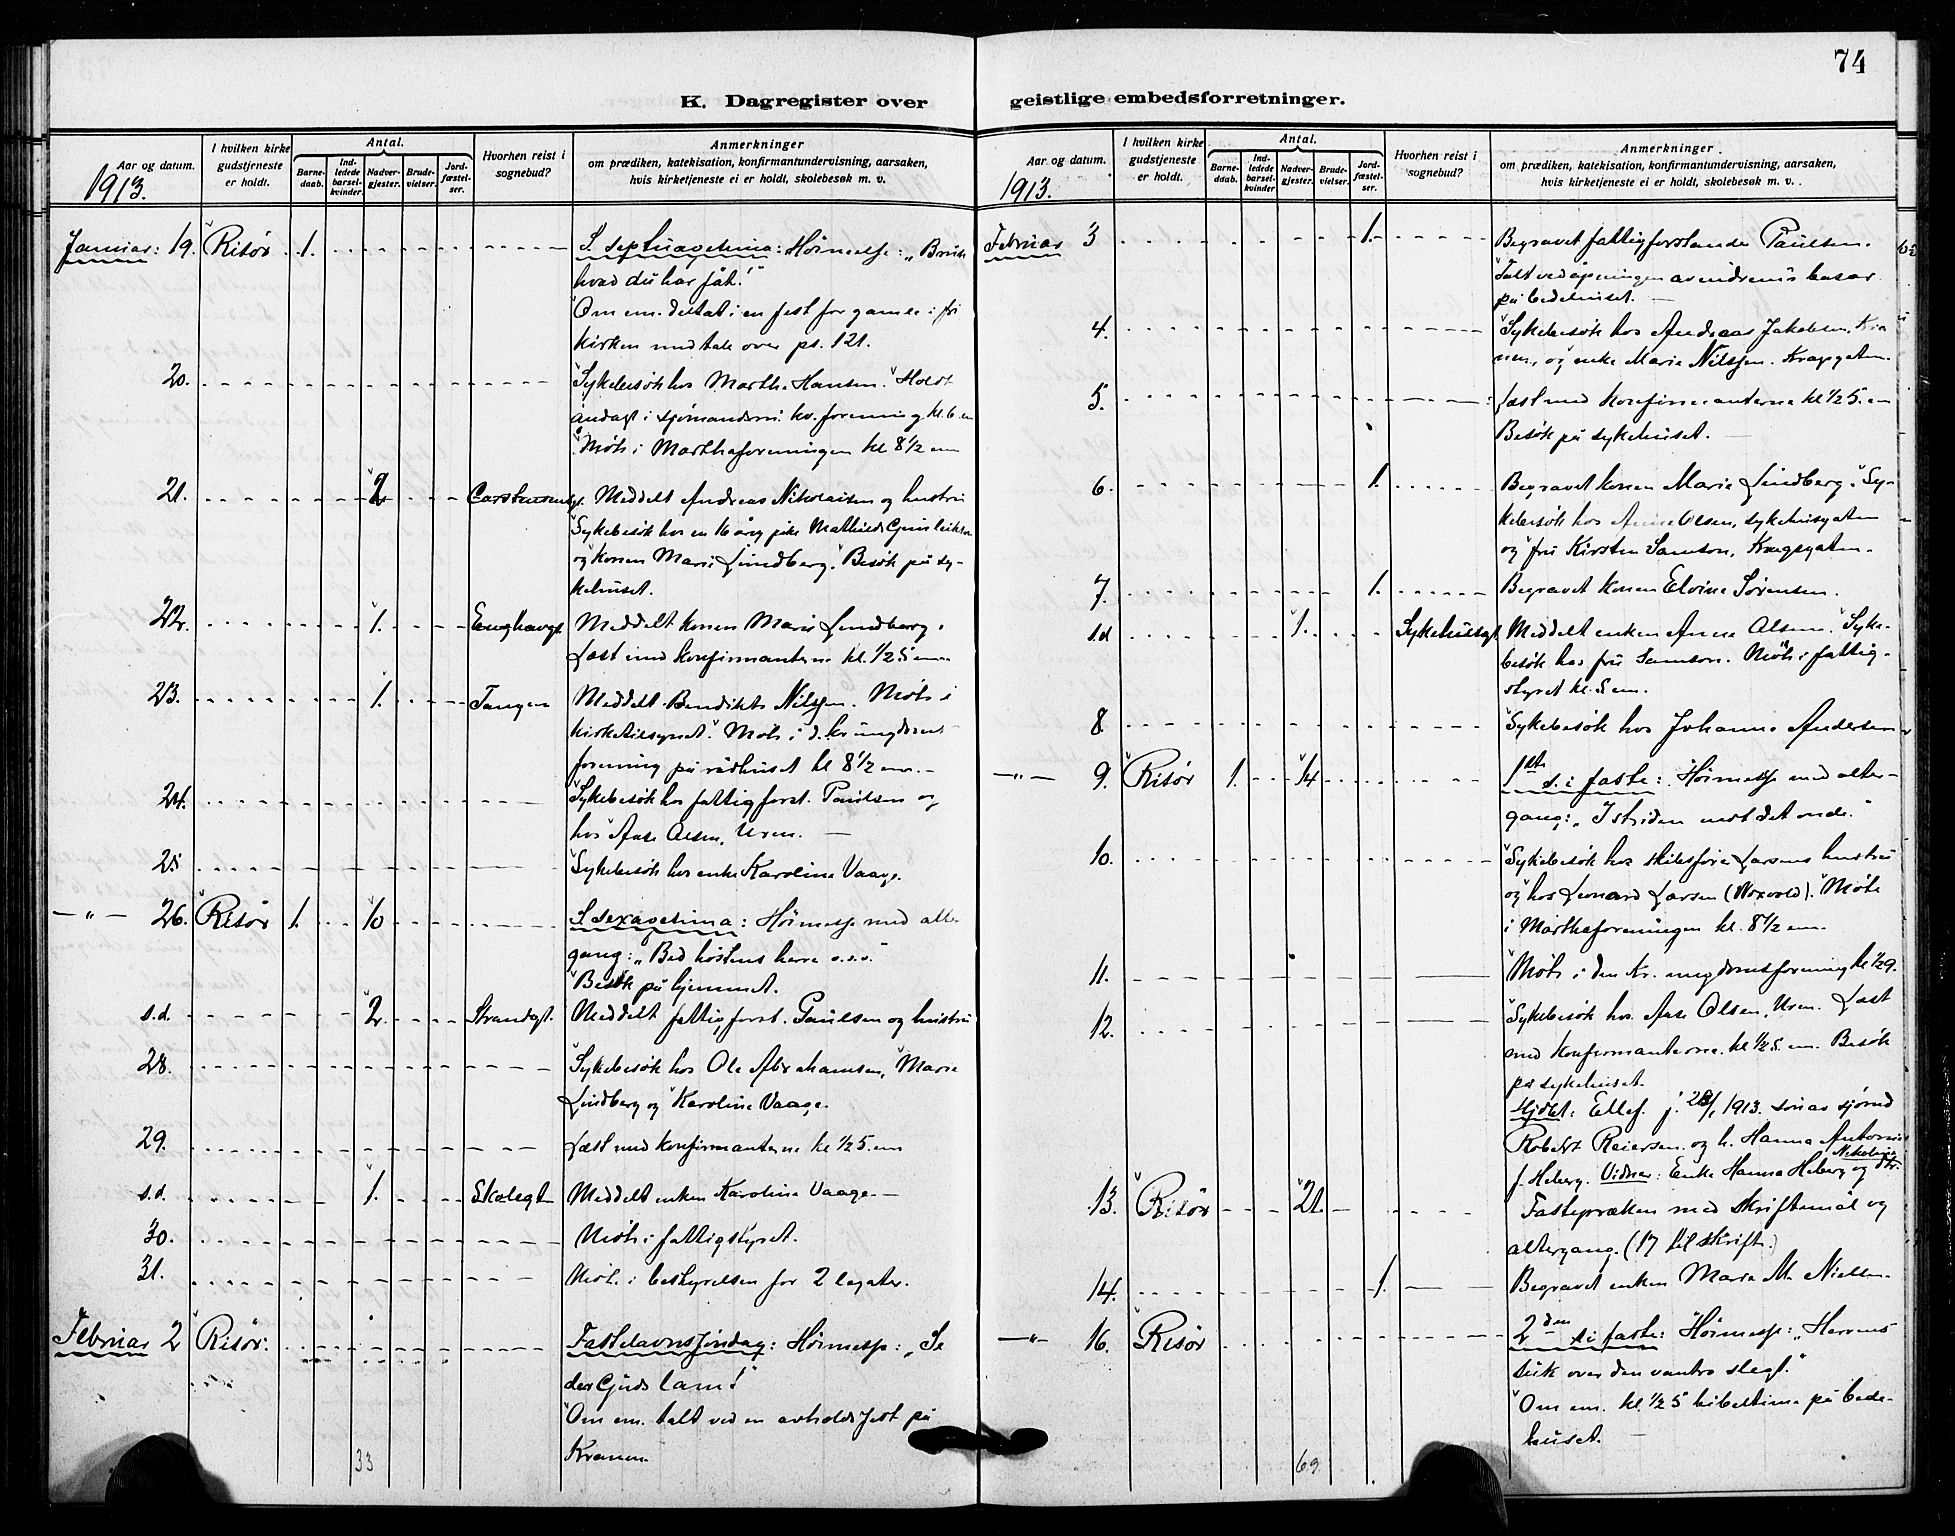 74
K. Dagregister over geistlige embedsforretninger.
Aar og datum.
1913.
I hvilken kirke gudstjeneste er holdt.
Antal.
Barne-daab.
Ind-ledede barsel-kvinder.
Nadver-gjester.
Brude-vielser.
Jord-fæstel-ser.
Hvorhen reist i sognebud?
Anmerkninger
om prædiken, katekisation, konfirmantundervisning, aarsaken,
hvis kirketjeneste ei er holdt, skolebesøk m. v.
Januar: 19. Risør 1. S. septuagesima: Høimesse: „Bruk
hvad du har fåt!"
Om em. deltat i en fest for gamle i fri
kirken med tale over ps. 121.
20. Sykebesøk hos Marthe Hansen. Holdt
andagt i sjømandsm. kv. forening kl. 6 em
Møte i Marthaforeningen kl 8 1/2 em
21. 2 Carstensensgt. Meddelt Andreas Nikolaisen og hustru
Sykebesøk hos en 16 årig pike Mathilde Gunleiksen
og konen Marie Lindberg. Besøk på sy-
kehuset.
22. 1. Enghaugt. Meddelt konen Marie Lindberg.
Læst med konfirmanterne kl. 1/2 5 em.
23. 1. Tangen Meddelt Bendikte Nilsen. Møte i
kirketilsynet. Møte i d. kr. ungdoms
forening på rådhuset kl 8 1/2 em.
24. Sykebesøk hos fattigforst. Paulsen og
hos Aase Olsen, Uren.
25 Sykebesøk hos enke Karoline Vaage.
— " — 26. Risør 1. 10 S. sexagesima: Høimesse med alter
gang: „Bed høstens herre o.s.v."
Besøk på hjemmet.
s.d. 2. Strandgt. Meddelt fattigforst. Paulsen og hustru
28. Sykebesøk hos Ole Abrahamsen, Marie
Lindberg og Karoline Vaage.
29. Læst med konfirmanterne kl 1/2 5. em
s.d. 1. Skolegt Meddelt enken Karoline Vaage.
30. Møte i fattigstyret.
31. Møte i bestyrelsen for 2 legater.
Februar 2 Risør: Fastelavnssøndag: Høimesse: „Se
der Guds lam!"
Om em. talt ved en avholdsfest på
Kranen.
33
Aar og datum.
1913.
I hvilken kirke gudstjeneste er holdt.
Antal.
Barne-daab.
Ind-ledede barsel-kvinder
Nadver-gjester.
Brude-vielser.
Jord-fæstel-ser.
Hvorhen reist i sognebud?
Anmerkninger
om prædiken, katekisation, konfirmantundervisning, aarsaken,
hvis kirketjeneste ei er holdt, skolebesøk m. v.
Februar 3 1. Begravet fattigforstander Paulsen.
Talt ved åpningen av indremis basar
på bedehuset.
4. Sykebesøk hos Andreas Jakobsen, Kra
nen, og enke Marie Nilsen. Kragsgaten.
5. Læst med konfirmanterne kl 1/2 5. em
Besøk på sykehuset.
6. 1. Begravet konen Marie Lindberg. Sy-
kebesøk hos Anne Olsen, sykehusgaten
og fru Kirsten Samson, Kragsgaten.
7. 1. Begravet konen Elvine Sørensen.
s.d 1. Sykehusgt. Meddelt enken Anne Olsen. Syke-
besøk hos fru Samson. Møte i fattig-
styret kl. 5 em.
8. Sykebesøk hos Johanne Andersen
— " — 9. Risør 1. 14 1ste s. i faste: Høimesse med alter-
gang: „I striden mot det onde."
10. Sykebesøk hos skibsfører Larsens hustru
og hos Leonard Larsen (Noxvold). Møte
i Marthaforeningen kl. 8 1/2 em.
11. Møte i den kr. ungdomsforening kl 1/2 9.
12. Sykebesøk hos Aase Olsen, Uren. Læst
med konfirmanterne kl 1/2 5. em. Besøk
på sykehuset.
Hjdøt: Ellef f. 28/1 1913. søn av sjømd
Robert Reiersen og h. Hanna Antonie
f. Heberg. Vidner: Enke Hanna Heberg og dtr. Nikoline
13. Risør 21. Fastepræken med skriftemål og
altergang. (17 til skrifte.)
14. 1. Begravet enken Marie M. Nielsen.
— " — 16. Risør 2den s. i faste: Høimesse: „Herrens
suk over den vantro slegt."
Om em. kl. 1/2 5 bibeltime på bede-
huset.
69